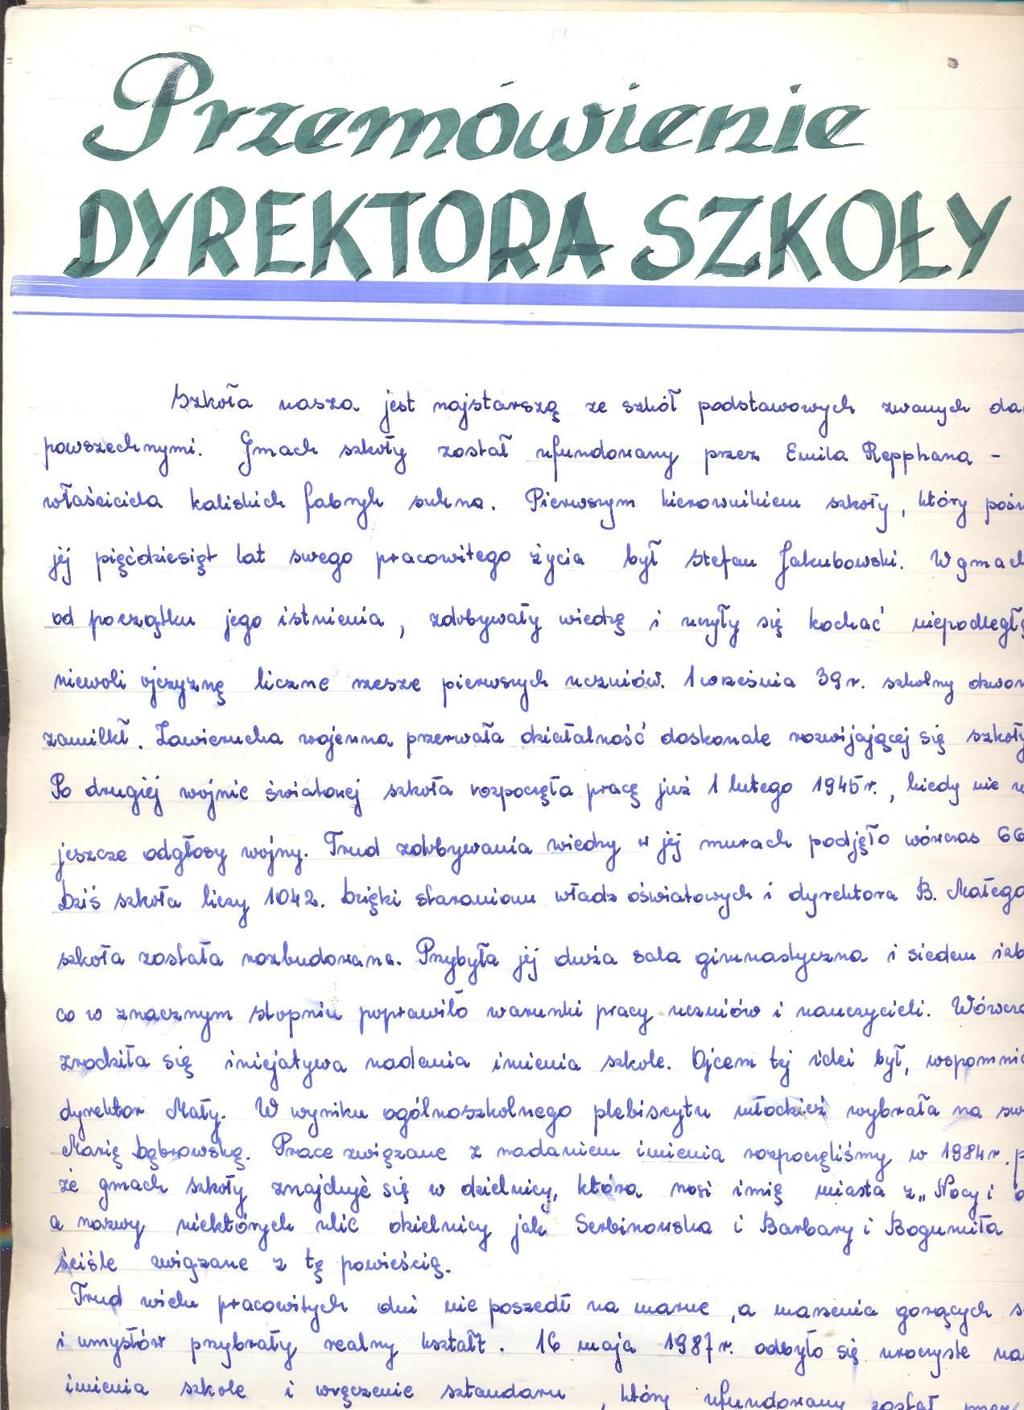 Przemówienie
DYREKTORA SZKOŁY
Szkoła nasza jest najstarszą ze szkół podstawowych zwanych da
powszechnymi. Gmach szkoły został ufundowany przez Emila Repphana -
właściciela kaliskich fabryk sukna. Pierwszym kierownikiem szkoły, który pośw
jej pięćdziesiąt lat swego pracowitego życia był Stefan Jakubowski. W gmach
od początku jego istnienia, zdobywały wiedzę i uczyły się kochać niepodległą
niewoli ojczyznę liczne rzesze pierwszych uczniów. 1 września 39 r. szkolny dzwon
zamilkł. Zawierucha wojenna przerwała działalność doskonale rozwijającej się szkoły
Po drugiej wojnie światowej szkoła rozpoczęła pracę już 1 lutego 1945 r., kiedy nie
jeszcze odgłosy wojny. Trud zdobywania wiedzy w jej murach podjęło wówczas 66
Dziś szkoła liczy 1042. Dzięki staraniom władz oświatowych i dyrektora B. Małego
szkoła została rozbudowana. Przybyła jej duża sala gimnastyczna i siedem izb
co w znacznym stopniu poprawiło warunki pracy uczniów i nauczycieli. Wówcza
zrodziła się inicjatywa nadania imienia szkole. Ojcem tej idei był, wspomnia
dyrektor Mały. W wyniku ogólnoszkolnego plebiscytu młodzież wybrała na sw
Marię Dąbrowską. Prace związane z nadaniem imienia rozpoczęliśmy w 1984 r. p
że gmach szkoły znajduje się w dzielnicy, która nosi imię miasta z „Nocy i d
a nazwy niektórych ulic dzielnicy jak Serbinowska i Barbary i Bogumiła
ściśle związane z tą powieścią.
Trud wielu pracowitych dni nie poszedł na marne, a marzenia gorących s
i umysłów przybrały realny kształt. 16 maja 1987 r. odbyło się uroczyste na
imienia szkole i wręczenie sztandaru, który ufundowany został przez